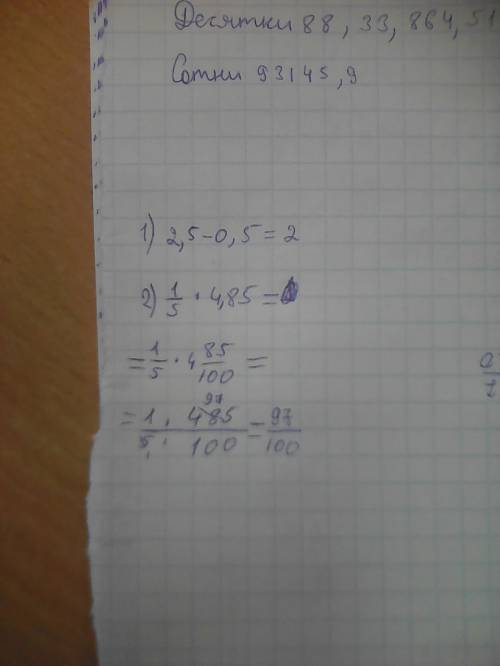 Десятки 88, 33, 864, 51
Сотни 93145, 9
1) 2,5-0,5=2
2) 1/5 · 4,85 =
= 1/5 · 4 85/100 =
= 1 · 485 / 5 · 100 = 97/100
97